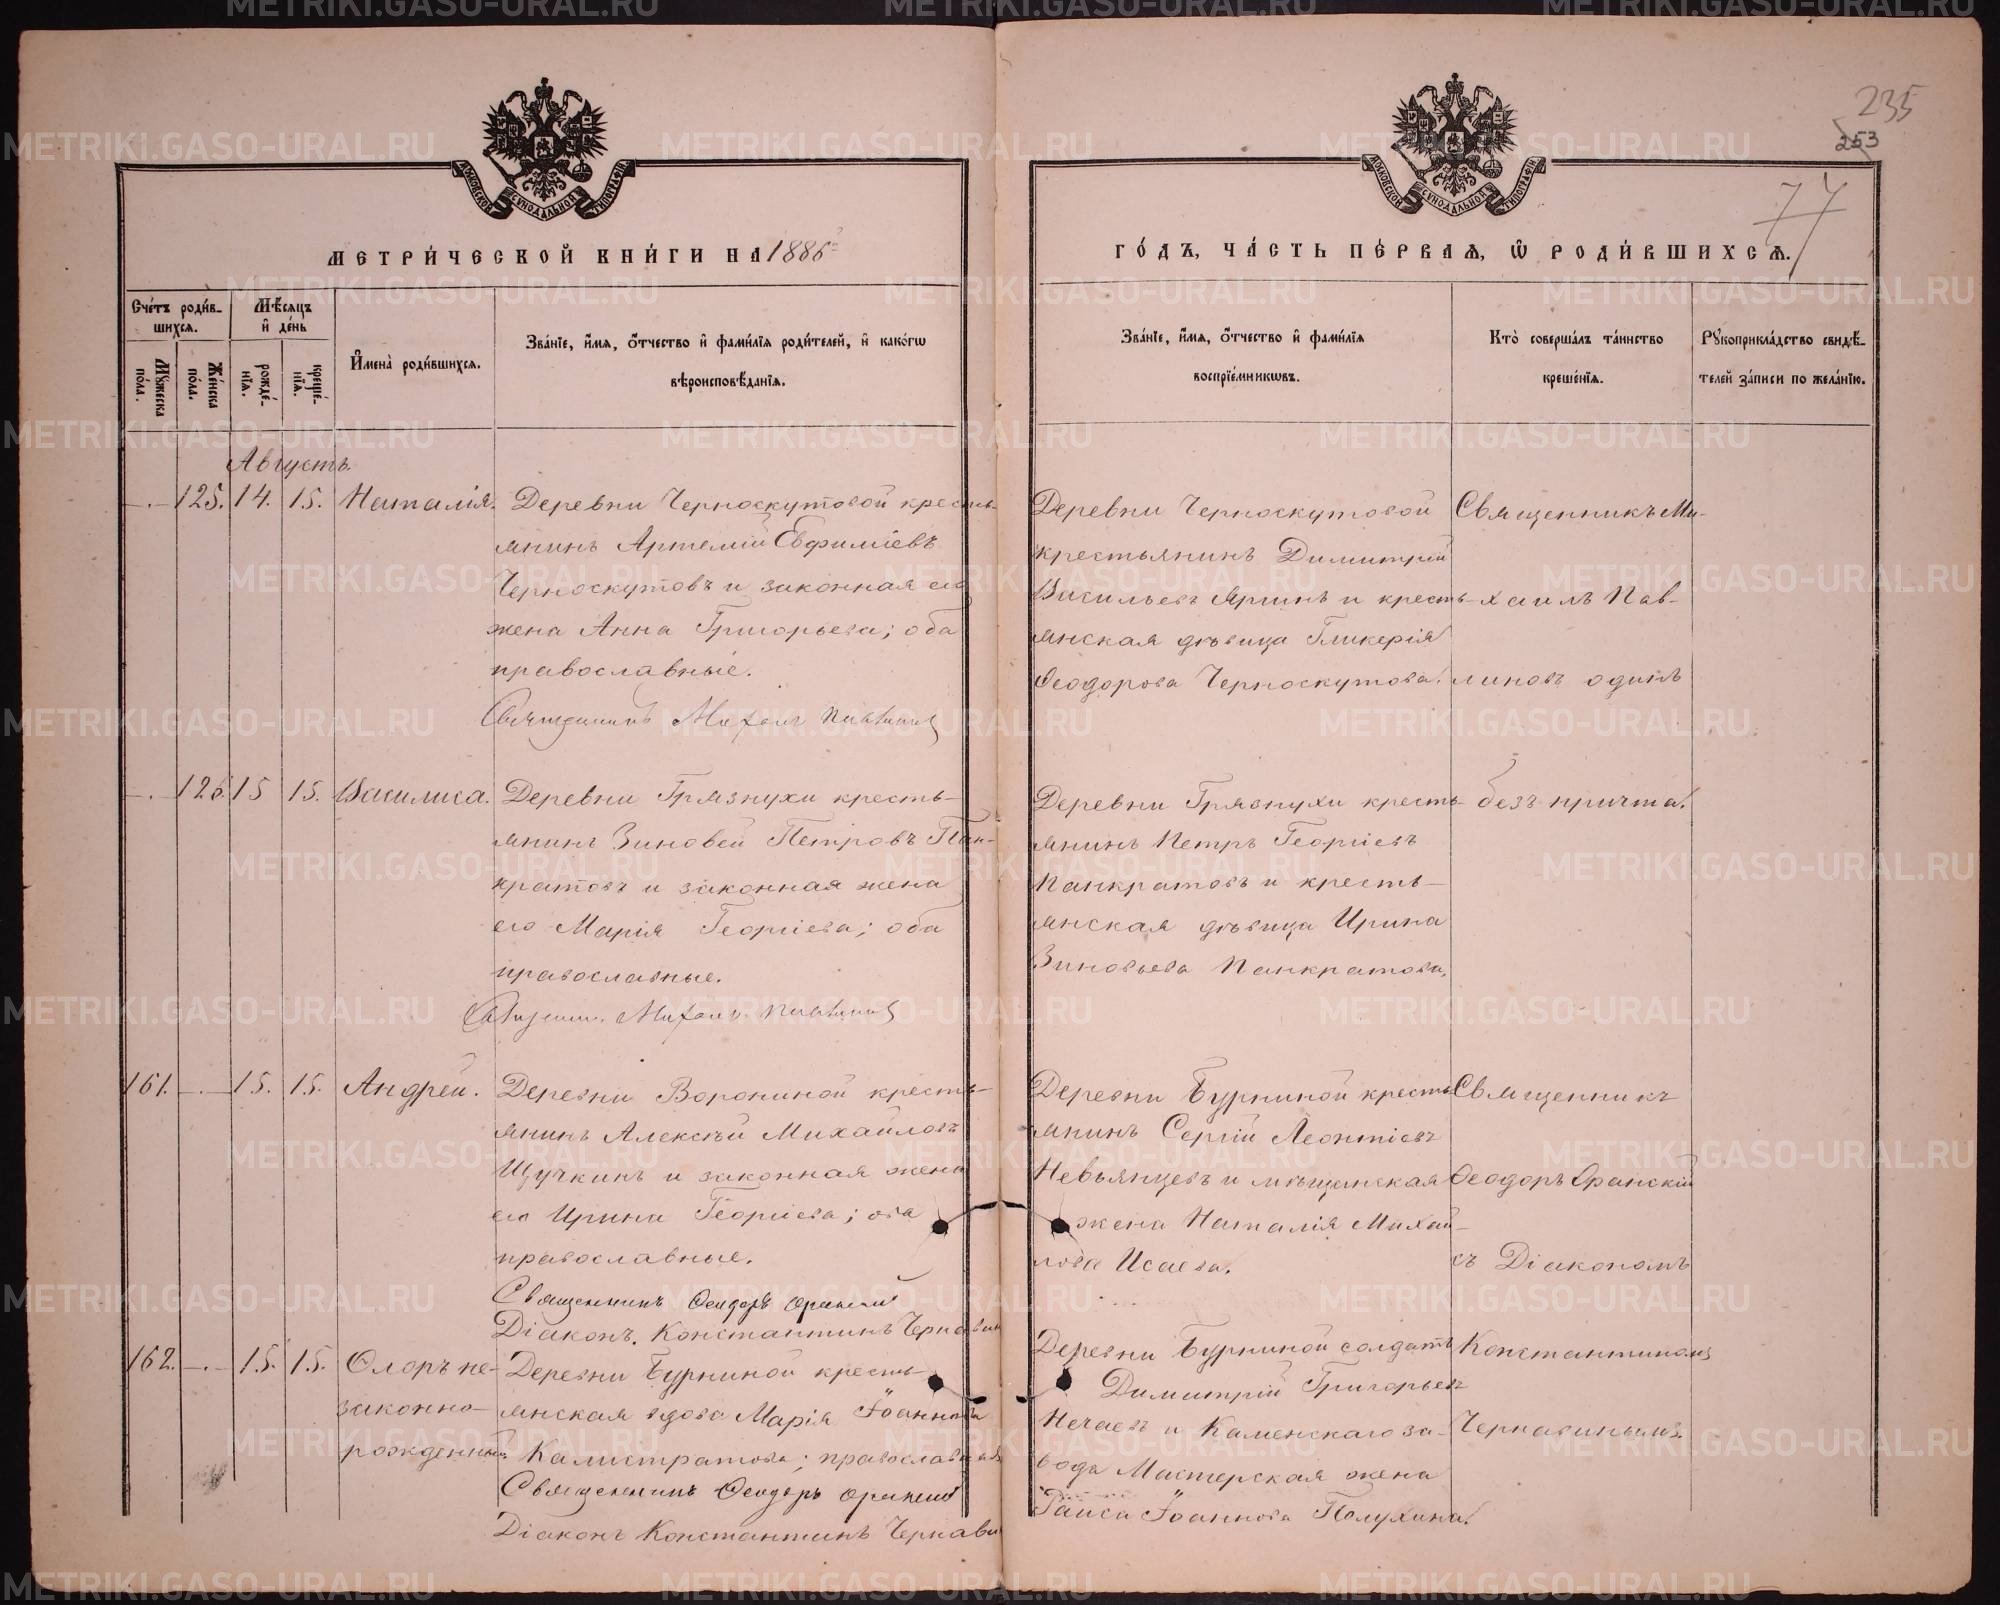 235
253
77
МОСКОВСКОЙ СѴНОДАЛЬНОЙ ТИПОГРАФІИ
МОСКОВСКОЙ СѴНОДАЛЬНОЙ ТИПОГРАФІИ
МЕТРИ́ЧЕСКОЙ КНИ́ГИ НА 1886
ГО́ДЪ, ЧА́СТЬ ПЕ́РВАѦ, Ѽ РОДИ́ВШИХСѦ.
Сче́тъ роди́в-
шихсѧ.
Мѣ́сѧцъ
и҆ де́нь
Мꙋ́жеска
по́ла.
Же́нска
по́ла.
рожде́-
нїѧ.
креще́-
нїѧ.
И҆мена̀ роди́вшихсѧ.
Зва́нїе, и҆́мѧ, ѻ҆́тчество и҆ фамѝлїѧ роди́телей, и҆ како́гѡ
вѣроисповѣ́данїѧ.
Зва́нїе, и҆́мѧ, ѻ҆́тчество и҆ фамѝлїѧ
воспрїе́мникѡвъ.
Кто̀ соверша́лъ та́инство
креще́нїѧ.
Рꙋкоприкла́дство свидѣ́-
телей за́писи по жела́нїю.
Августъ.
125. 14. 15. Наталія.
Деревни Черноскутовой кресть-
янинъ Артемій Евфиміевъ
Черноскутовъ и законная его
жена Анна Григорьева; оба
православные.
Священникъ Михаилъ Павлиновъ
Деревни Черноскутовой
крестьянинъ Димитрій
Васильевъ Яринъ и кресть-
янская дѣвица Гликерія
Ѳеодорова Черноскутова.
Священникъ Ми-
хаилъ Пав-
линовъ одинъ
126. 15 15. Василиса.
Деревни Грязнухи кресть-
янинъ Зиновей Петровъ Пан-
кратовъ и законная жена
его Марія Георгіева; оба
православные.
Священ. Михаилъ Павлиновъ
Деревни Грязнухи кресть-
янинъ Петръ Георгіевъ
Панкратовъ и кресть-
янская дѣвица Ирина
Зиновьева Панкратова.
безъ причта.
161. 15. 15. Андрей.
Деревни Ворониной кресть-
янинъ Алексѣй Михайловъ
Щучкинъ и законная жена
его Ирина Георгіева; оба
православные.
Священникъ Ѳеодоръ Оранскій
Діаконъ Константинъ Чернавин
Деревни Буркиной кресть-
янинъ Сергій Леонтіевъ
Невьянцевъ и мѣщанская
жена Наталія Михай-
лова Исаева.
Священникъ
Ѳеодоръ Оранскій
съ Діакономъ
162. 15. 15. Флоръ не-
законно-
рожденный.
Деревни Буркиной кресть-
янская вдова Марія Іоаннова
Калистратова; православная
Священникъ Ѳеодоръ Оранскій
Діаконъ Константинъ Чернави
Деревни Буркиной солдатъ
Димитрій Григорьевъ
Нечаевъ и Каменскаго за-
вода Мастерская жена
Раиса Іоаннова Полухина.
Константиномъ
Чернавинымъ.
METRIKI.GASO-URAL.RU